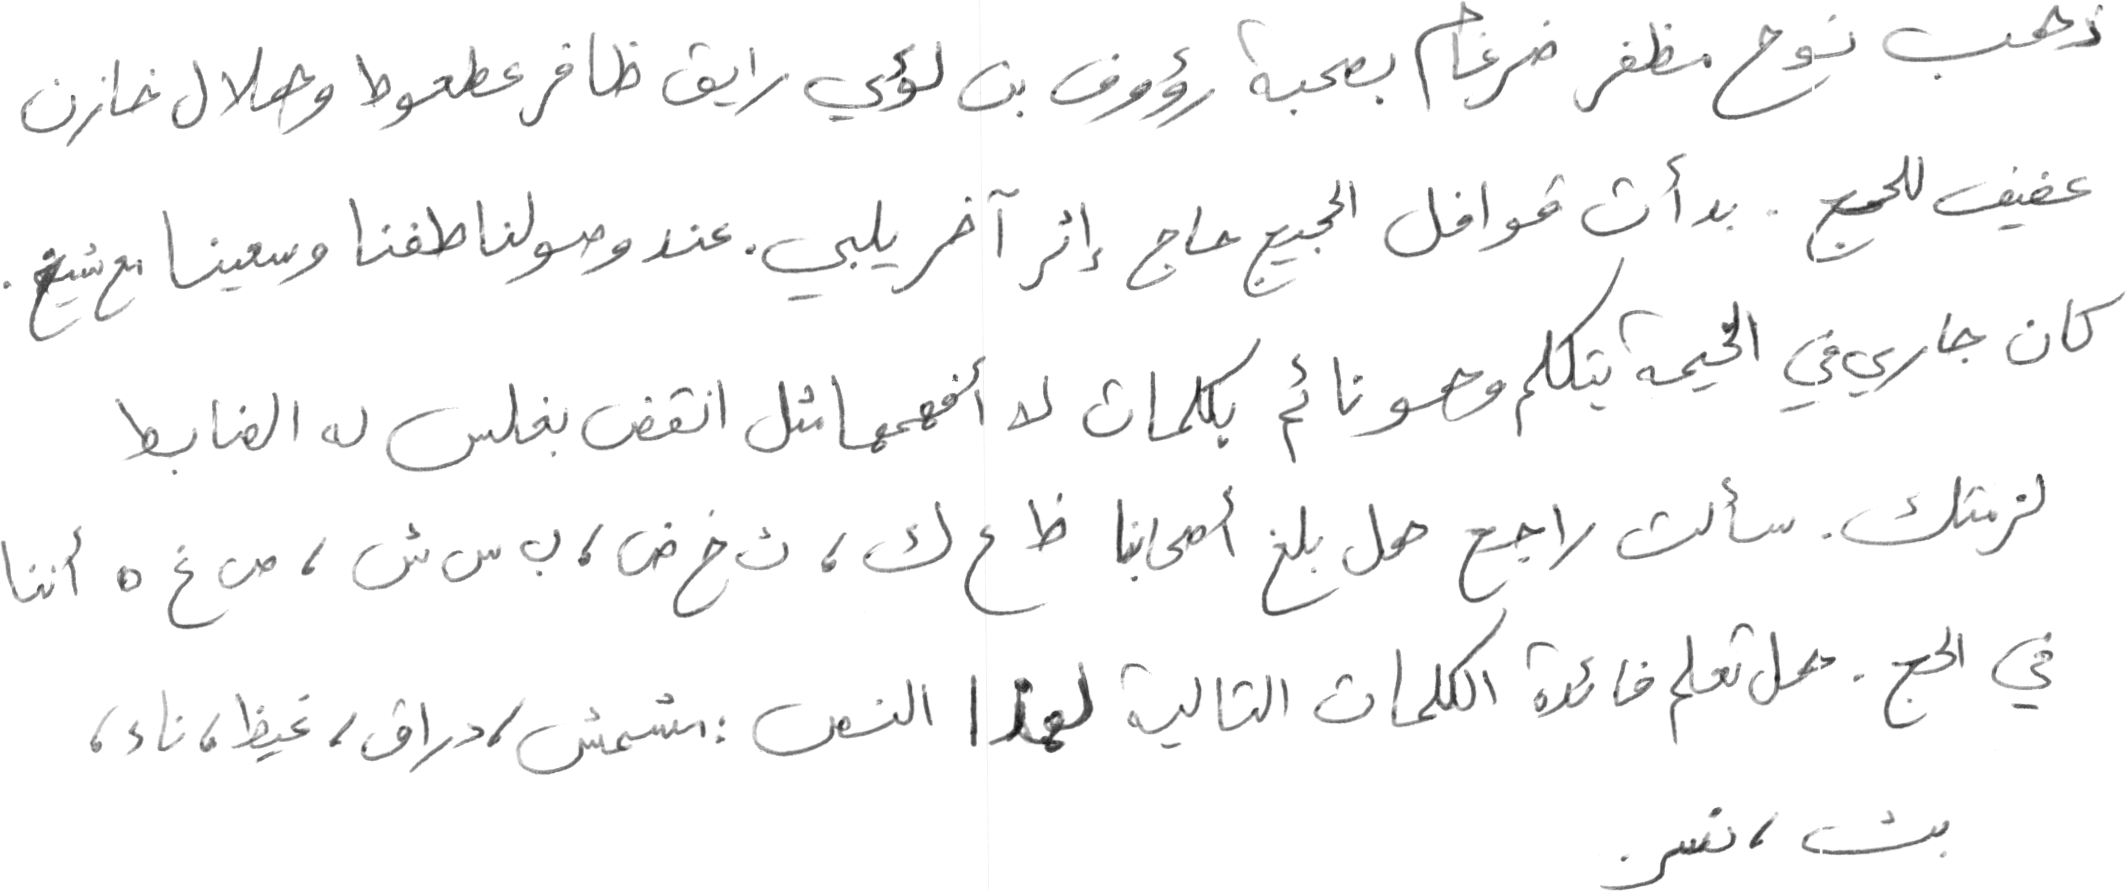 ذهب نوح مظفر ضرغام بصحبة رؤوف بن لؤي رايق ظافر عطعوط وهلال خازن
عفيف للحج . بدأت قوافل الحجيج حاج إثر آخر يلبي . عند وصولنا طفنا وسعينا مع شيخ .
كان جاري في الخيمة يتكلم وهو نائم بكلمات لا أفهمها مثل انقض بغلس له الضابط
لزمتك . سألت راجع هل بلغ أصحابنا ظ ع ك ، ث خ ض ، ب س ش ، ص غ ه أننا
في الحج . هل تعلم فائدة الكلمات التالية لهذا النص : مشمش ، دراق ، غيظ ، ناء ،
بث ، نسر .